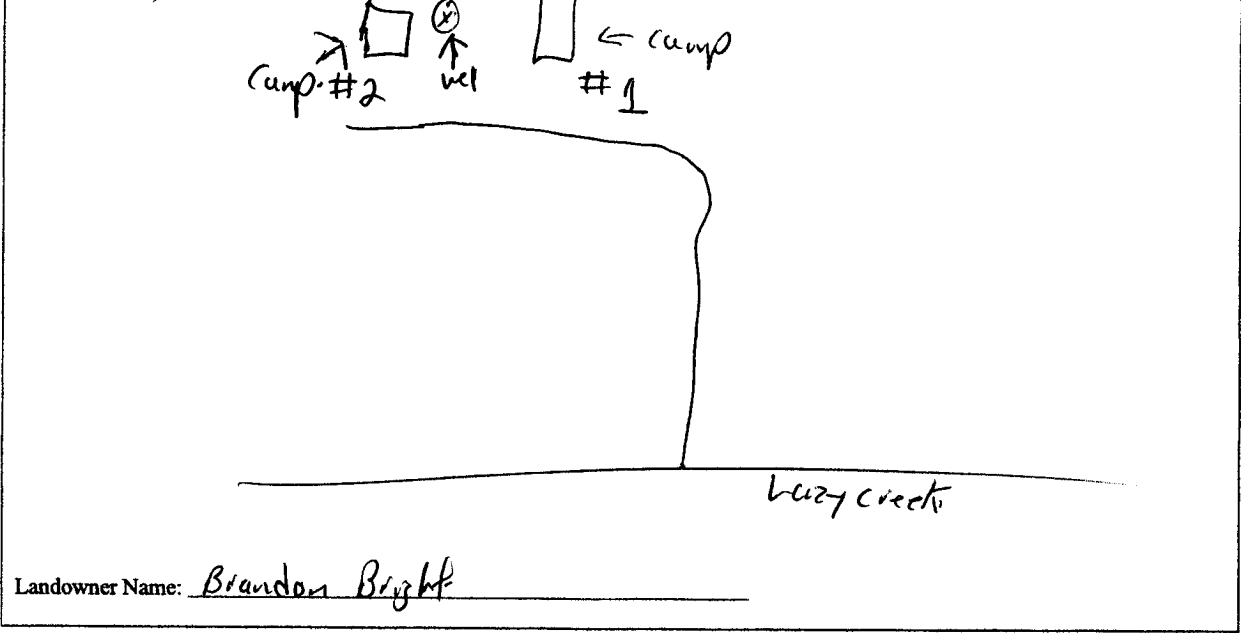 ← camp
Camp. #2
wel
# 1
Lazy Creek
Landowner Name: Brandon Bright